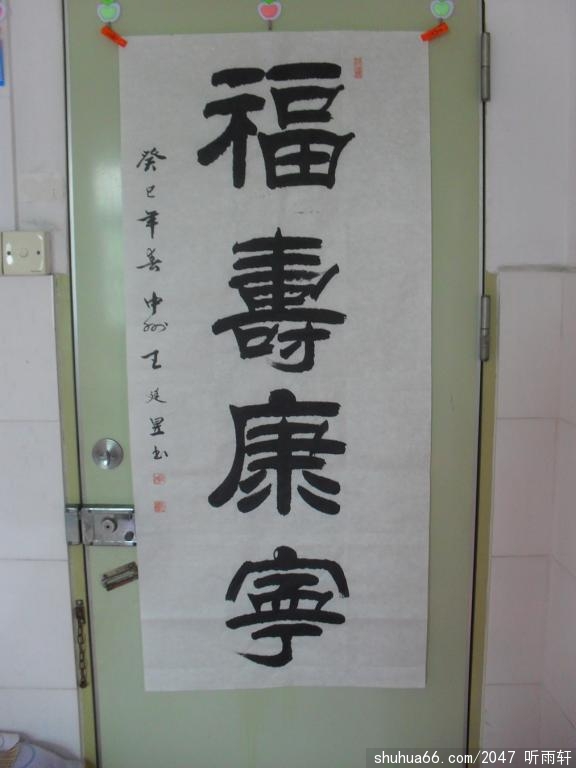 福壽康寧
癸巳年春中州王廷昱书
shuhua66.com/2047 听雨轩